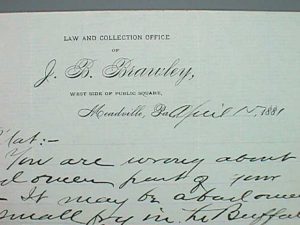 LAW AND COLLECTION OFFICE
OF
J. B. Brawley,
WEST SIDE OF PUBLIC SQUARE,
Meadville, Pa. April 15, 1881
You are wrong about
part of your
It may be abandoned
small fry in the Buffalo